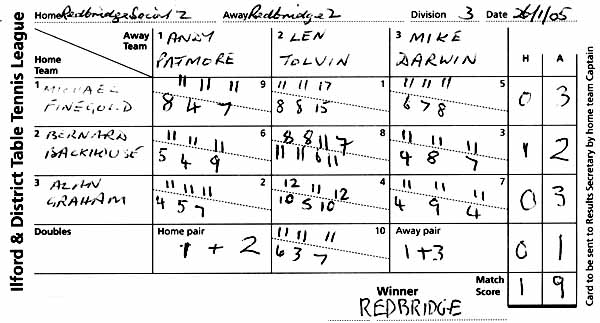 Ilford & District Table Tennis League
Home Redbridge Social 2 Away Redbridge 2 Division 3 Date 26/1/05
Away Team 1 ANDY PATMORE 2 LEN TOLVIN 3 MIKE DARWIN H A
Home Team
1 MICHAEL FINEGOLD 9 11 11 11 1 11 11 17 5 11 11 11 0 3
8 4 7 8 8 15 6 7 8
2 BERNARD BACKHOUSE 6 11 11 11 8 8 8 11 7 3 11 11 11 1 2
5 4 9 11 11 6 11 4 8 7
3 ALAN GRAHAM 2 11 11 11 4 12 4 12 7 11 11 11 0 3
4 5 7 10 5 10 4 9 4
Doubles Home pair 10 11 11 11 Away pair
1 + 2 6 3 7 1+3 0 1
Winner Match Score 1 9
REDBRIDGE
Card to be sent to Results Secretary by home team Captain